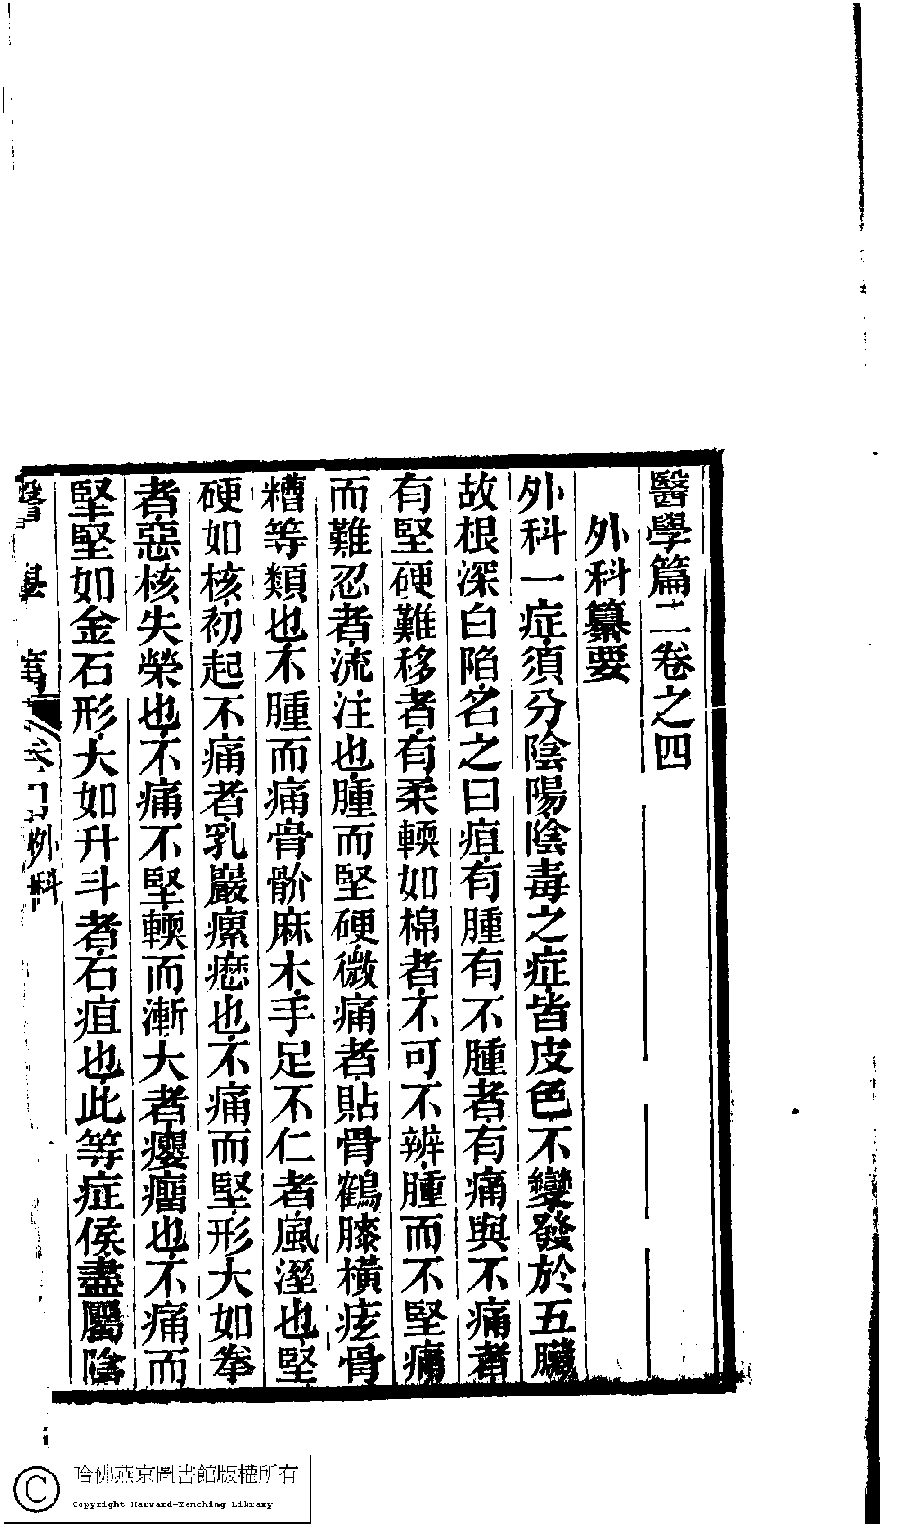 醫學篇二卷之四
外科纂要
外科一症須分陰陽陰毒之症皆皮色不變發於五臟
故根深白陷名之曰疽有腫有不腫者有痛與不痛者
有堅硬難移者有柔輭如棉者不可不辨腫而不堅痛
而難忍者流注也腫而堅硬微痛者貼骨鶴膝橫痃骨
糟等類也不腫而痛骨骱麻木手足不仁者風溼也堅
硬如核初起不痛者乳巖瘰癧也不痛而堅形大如拳
者惡核失榮也不痛不堅輭而漸大者癭瘤也不痛而
堅堅如金石形大如升斗者石疽也此等症候盡屬陰
外科
哈佛燕京圖書館版權所有
Copyright Harvard-Yenching Library